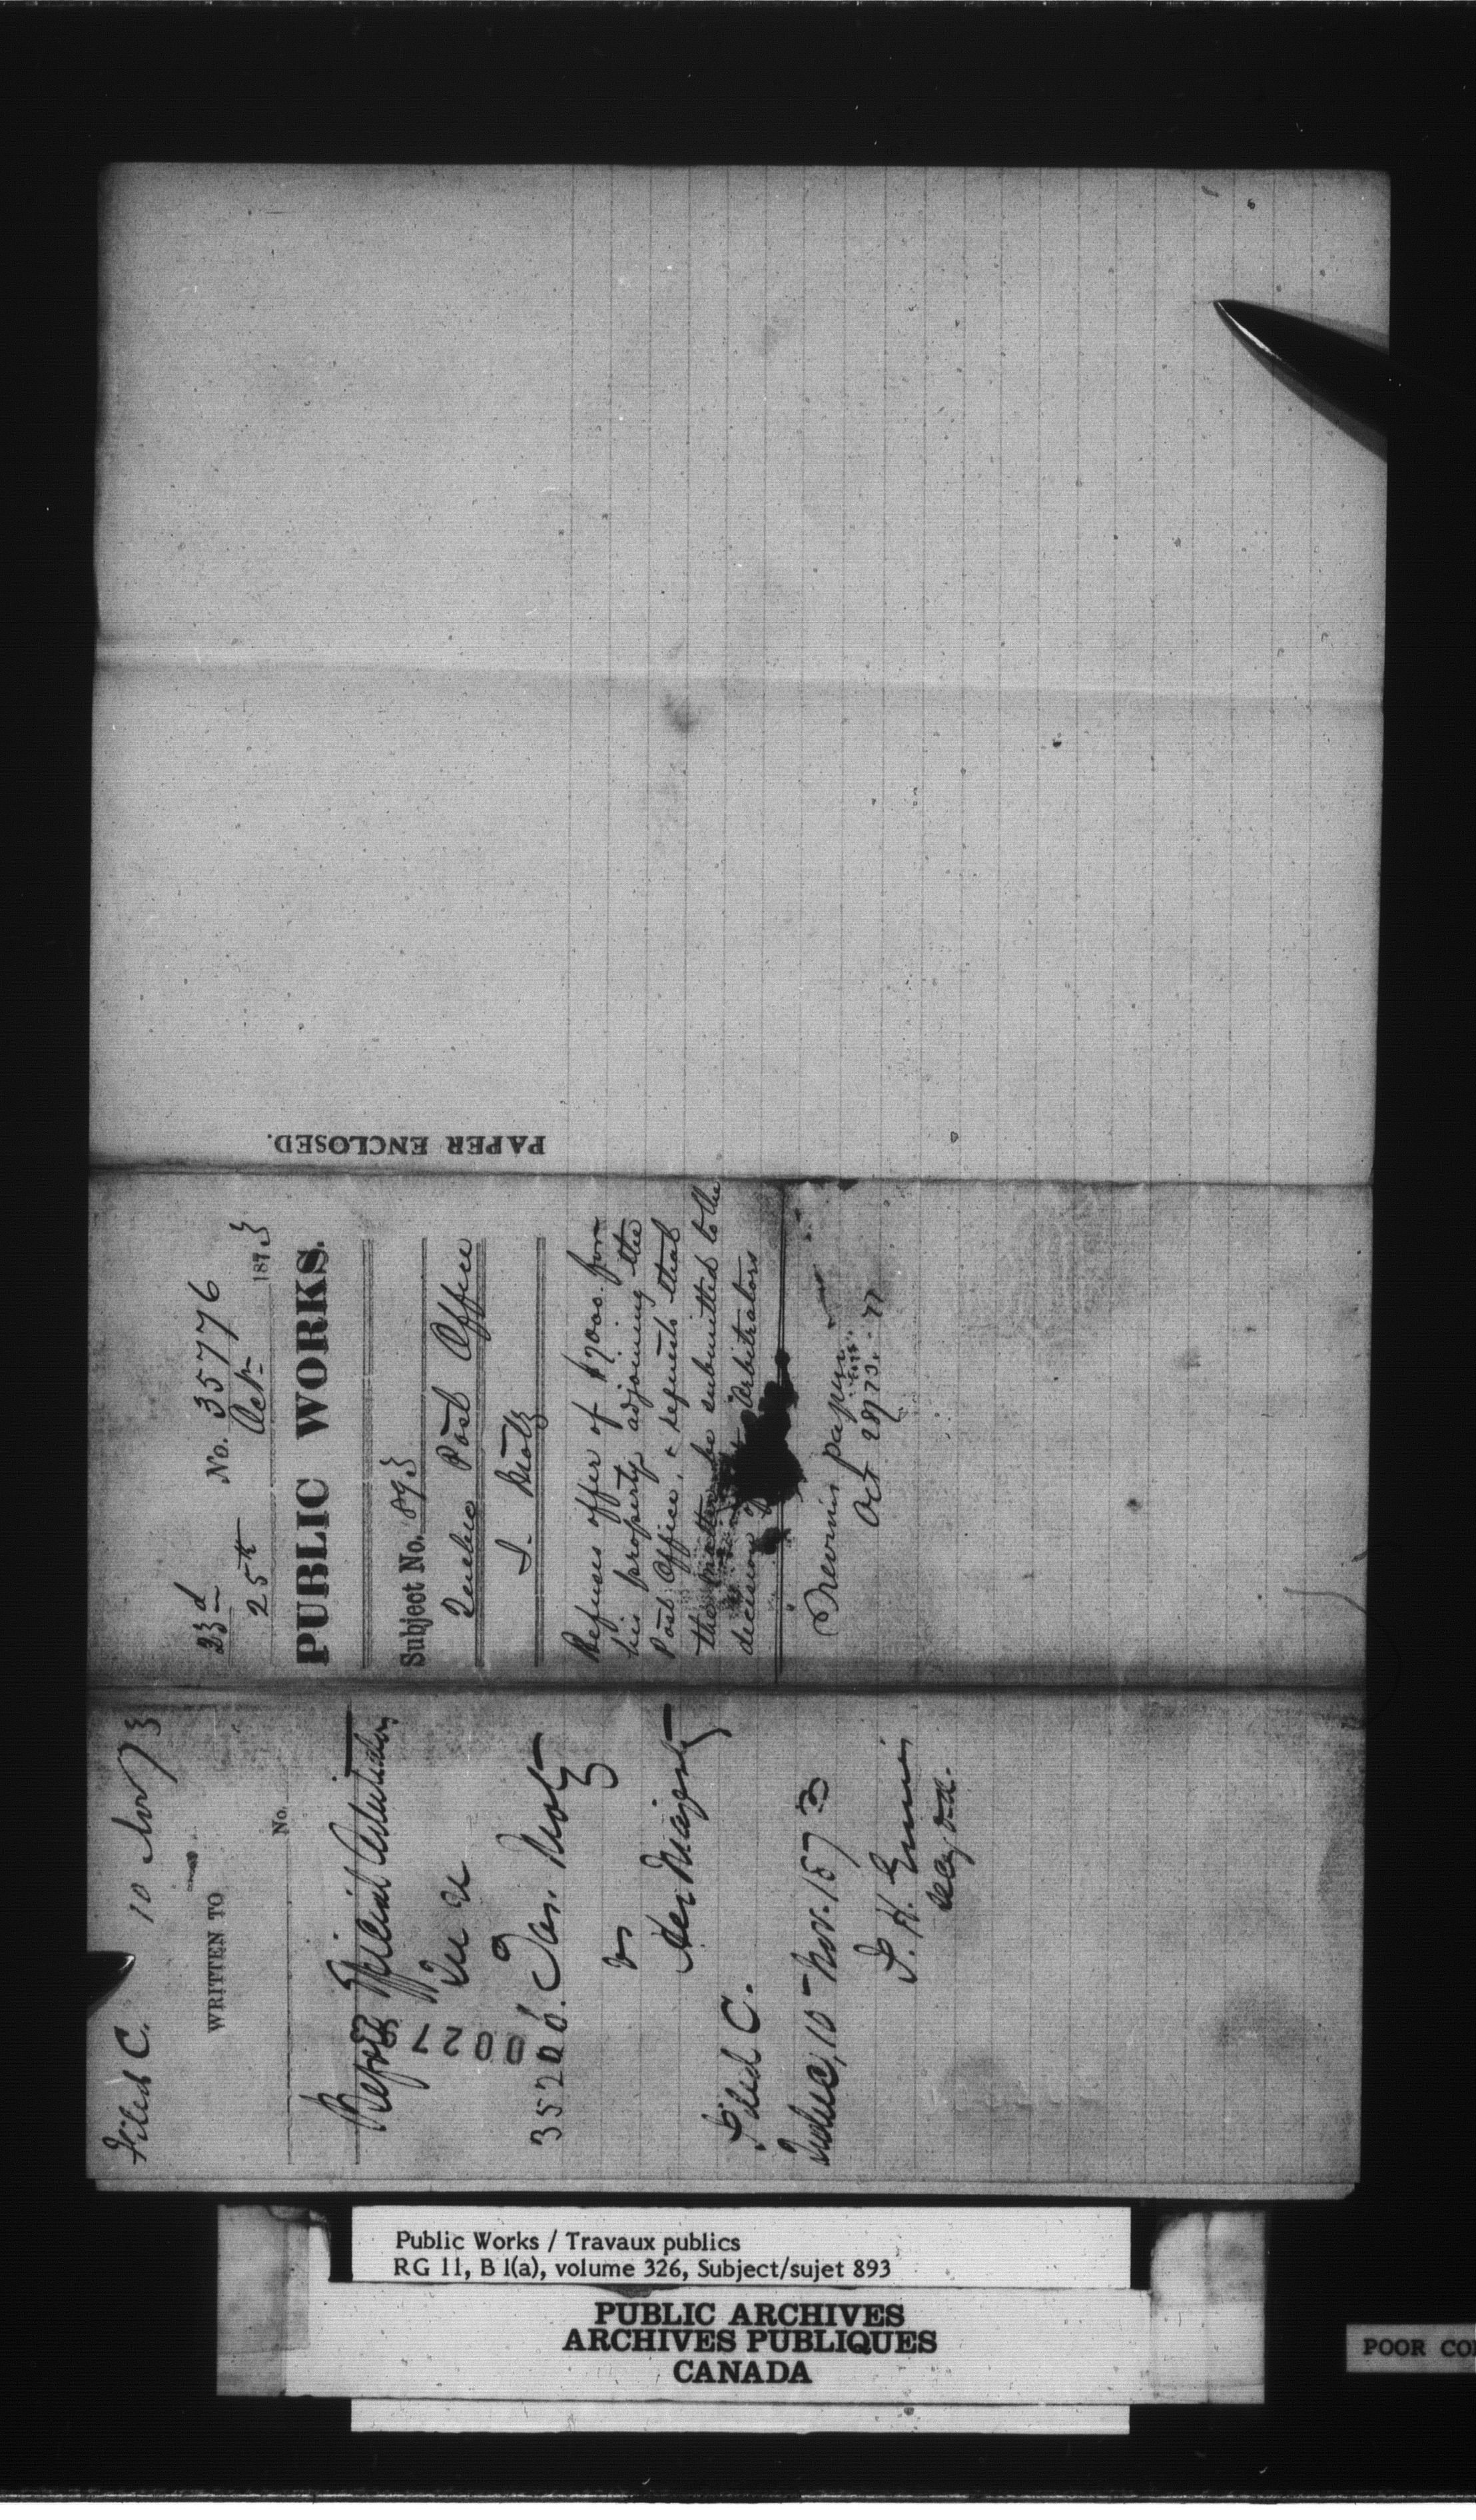 Filed C. 10 Nov 73
WRITTEN TO
No.
Before Official Arbitrators
35206. Jas. Motz
vs
Her Majesty
Filed C.
Quebec, 10 Nov. 1873
PAPER ENCLOSED.
23d No. 35776
25th Oct 1873
PUBLIC WORKS.
Subject No. 893
Quebec Post Office
J. Motz
Refuses offer of $7000. for
his property adjoining the
Post Office, & requests that
the matter be submitted to the
decision Arbitrators
papers
Oct
Public Works / Travaux publics
RG 11, B 1(a), volume 326, Subject/sujet 893
PUBLIC ARCHIVES
ARCHIVES PUBLIQUES
CANADA
POOR CO